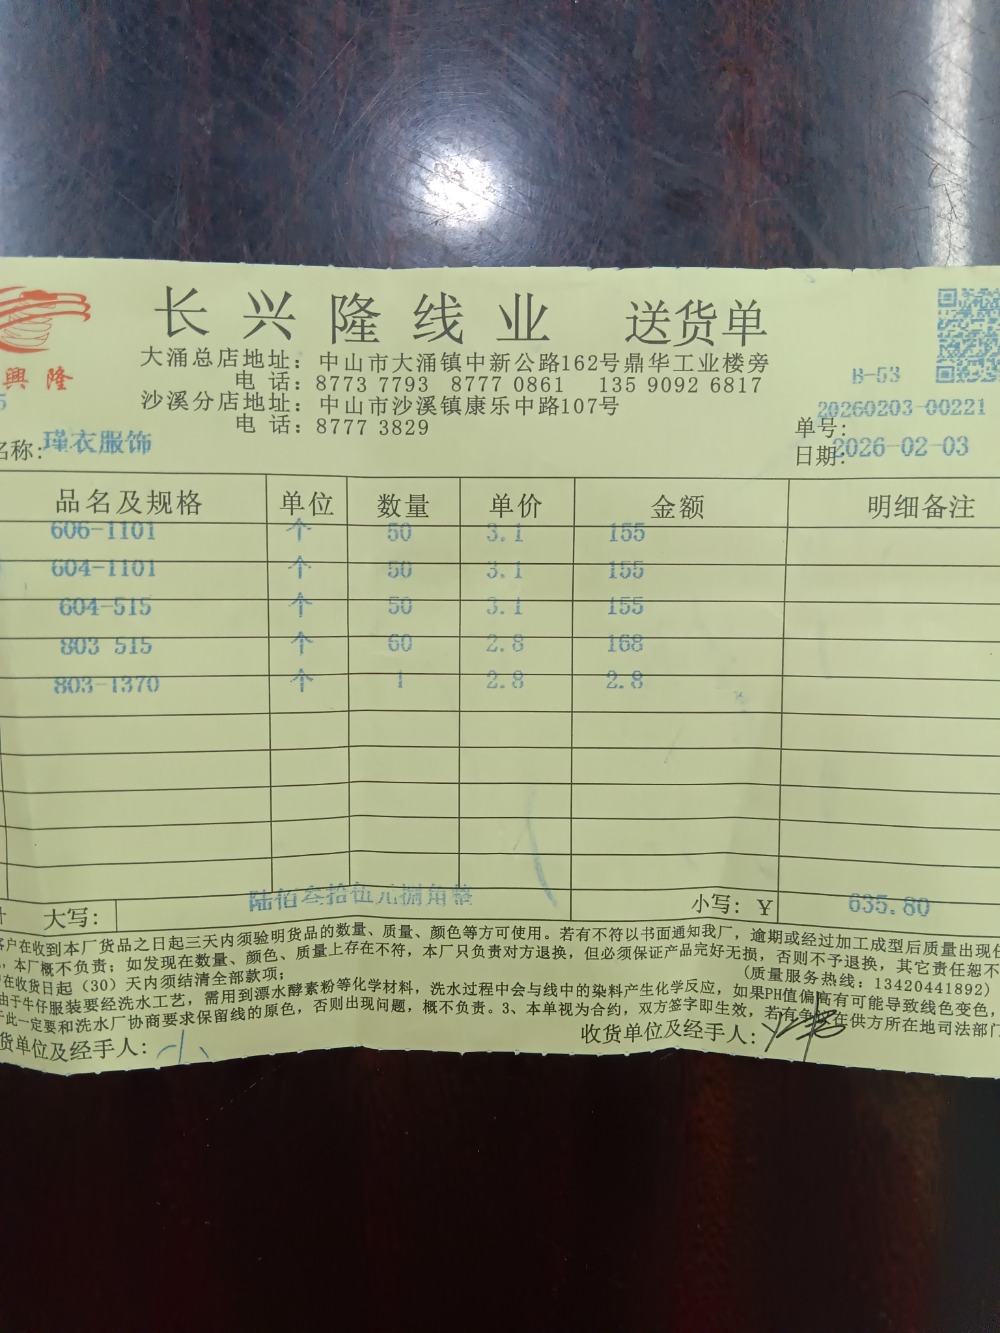 长兴隆线业 送货单
興隆
大涌总店地址：中山市大涌镇中新公路162号鼎华工业楼旁
电 话：8773 7793 8777 0861 135 9092 6817
B-53
沙溪分店地址：中山市沙溪镇康乐中路107号
电 话：8777 3829
5
单号：20260203-00221
名称：瑾衣服饰
日期：2026-02-03
品名及规格 单位 数量 单价 金额 明细备注
606-1101 个 50 3.1 155
604-1101 个 50 3.1 155
604-515 个 50 3.1 155
803 515 个 60 2.8 168
803-1370 个 1 2.8 2.8
大写： 陆佰叁拾伍元捌角整 小写：￥ 635.80
客户在收到本厂货品之日起三天内须验明货品的数量、质量、颜色等方可使用。若有不符以书面通知我厂，逾期或经过加工成型后质量出现任
，本厂概不负责；如发现在数量、颜色、质量上存在不符，本厂只负责对方退换，但必须保证产品完好无损，否则不予退换，其它责任恕不
在收货日起（30）天内须结清全部款项；
(质量服务热线：13420441892)
由于牛仔服装要经洗水工艺，需用到漂水酵素粉等化学材料，洗水过程中会与线中的染料产生化学反应，如果PH值偏高有可能导致线色变色，
于此一定要和洗水厂协商要求保留线的原色，否则出现问题，概不负责。3、本单视为合约，双方签字即生效，若有争 在供方所在地司法部门
货单位及经手人：
收货单位及经手人：